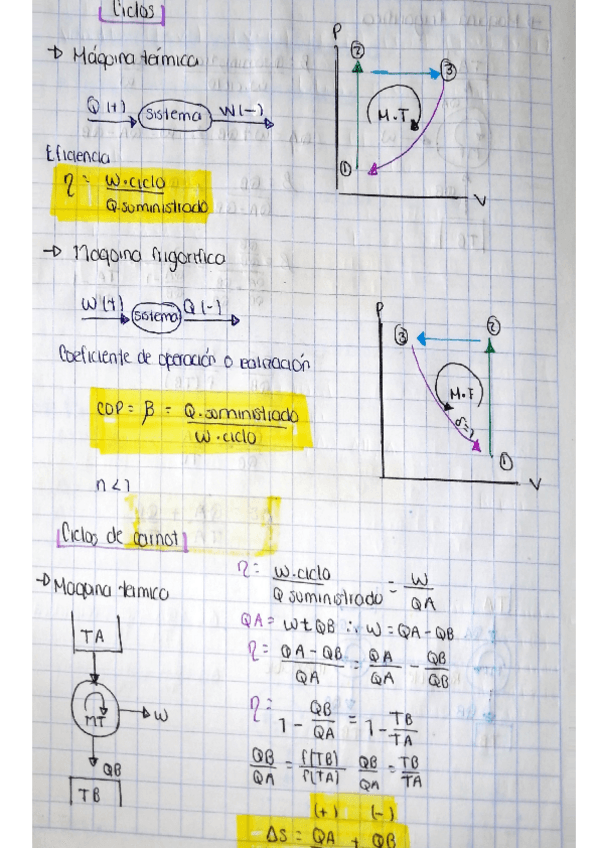 Ciclos
→ Máquina térmica
Q (+) sistema W(-)
Eficiencia
η = W.ciclo / Q.suministrado
P
②
③
M.T
①
V
→ Maquina frigorifica
W (+) sistema Q (-)
Coeficiente de operación o
COP = β = Q.suministrado / W.ciclo
n < 1
P
③
②
M.T
①
V
Ciclos de carnot
→ Maquina termica
TA
MT
W
QB
TB
η = W.ciclo / Q suministrado = W / QA
QA = W + QB ∴ W = QA - QB
η = QA - QB / QA = QA / QA - QB / QB
η = 1 - QB / QA = 1 - TB / TA
QB / QA = f(TB) / f(TA) QB / QA = TB / TA
(+) (-)
ΔS = QA + QB